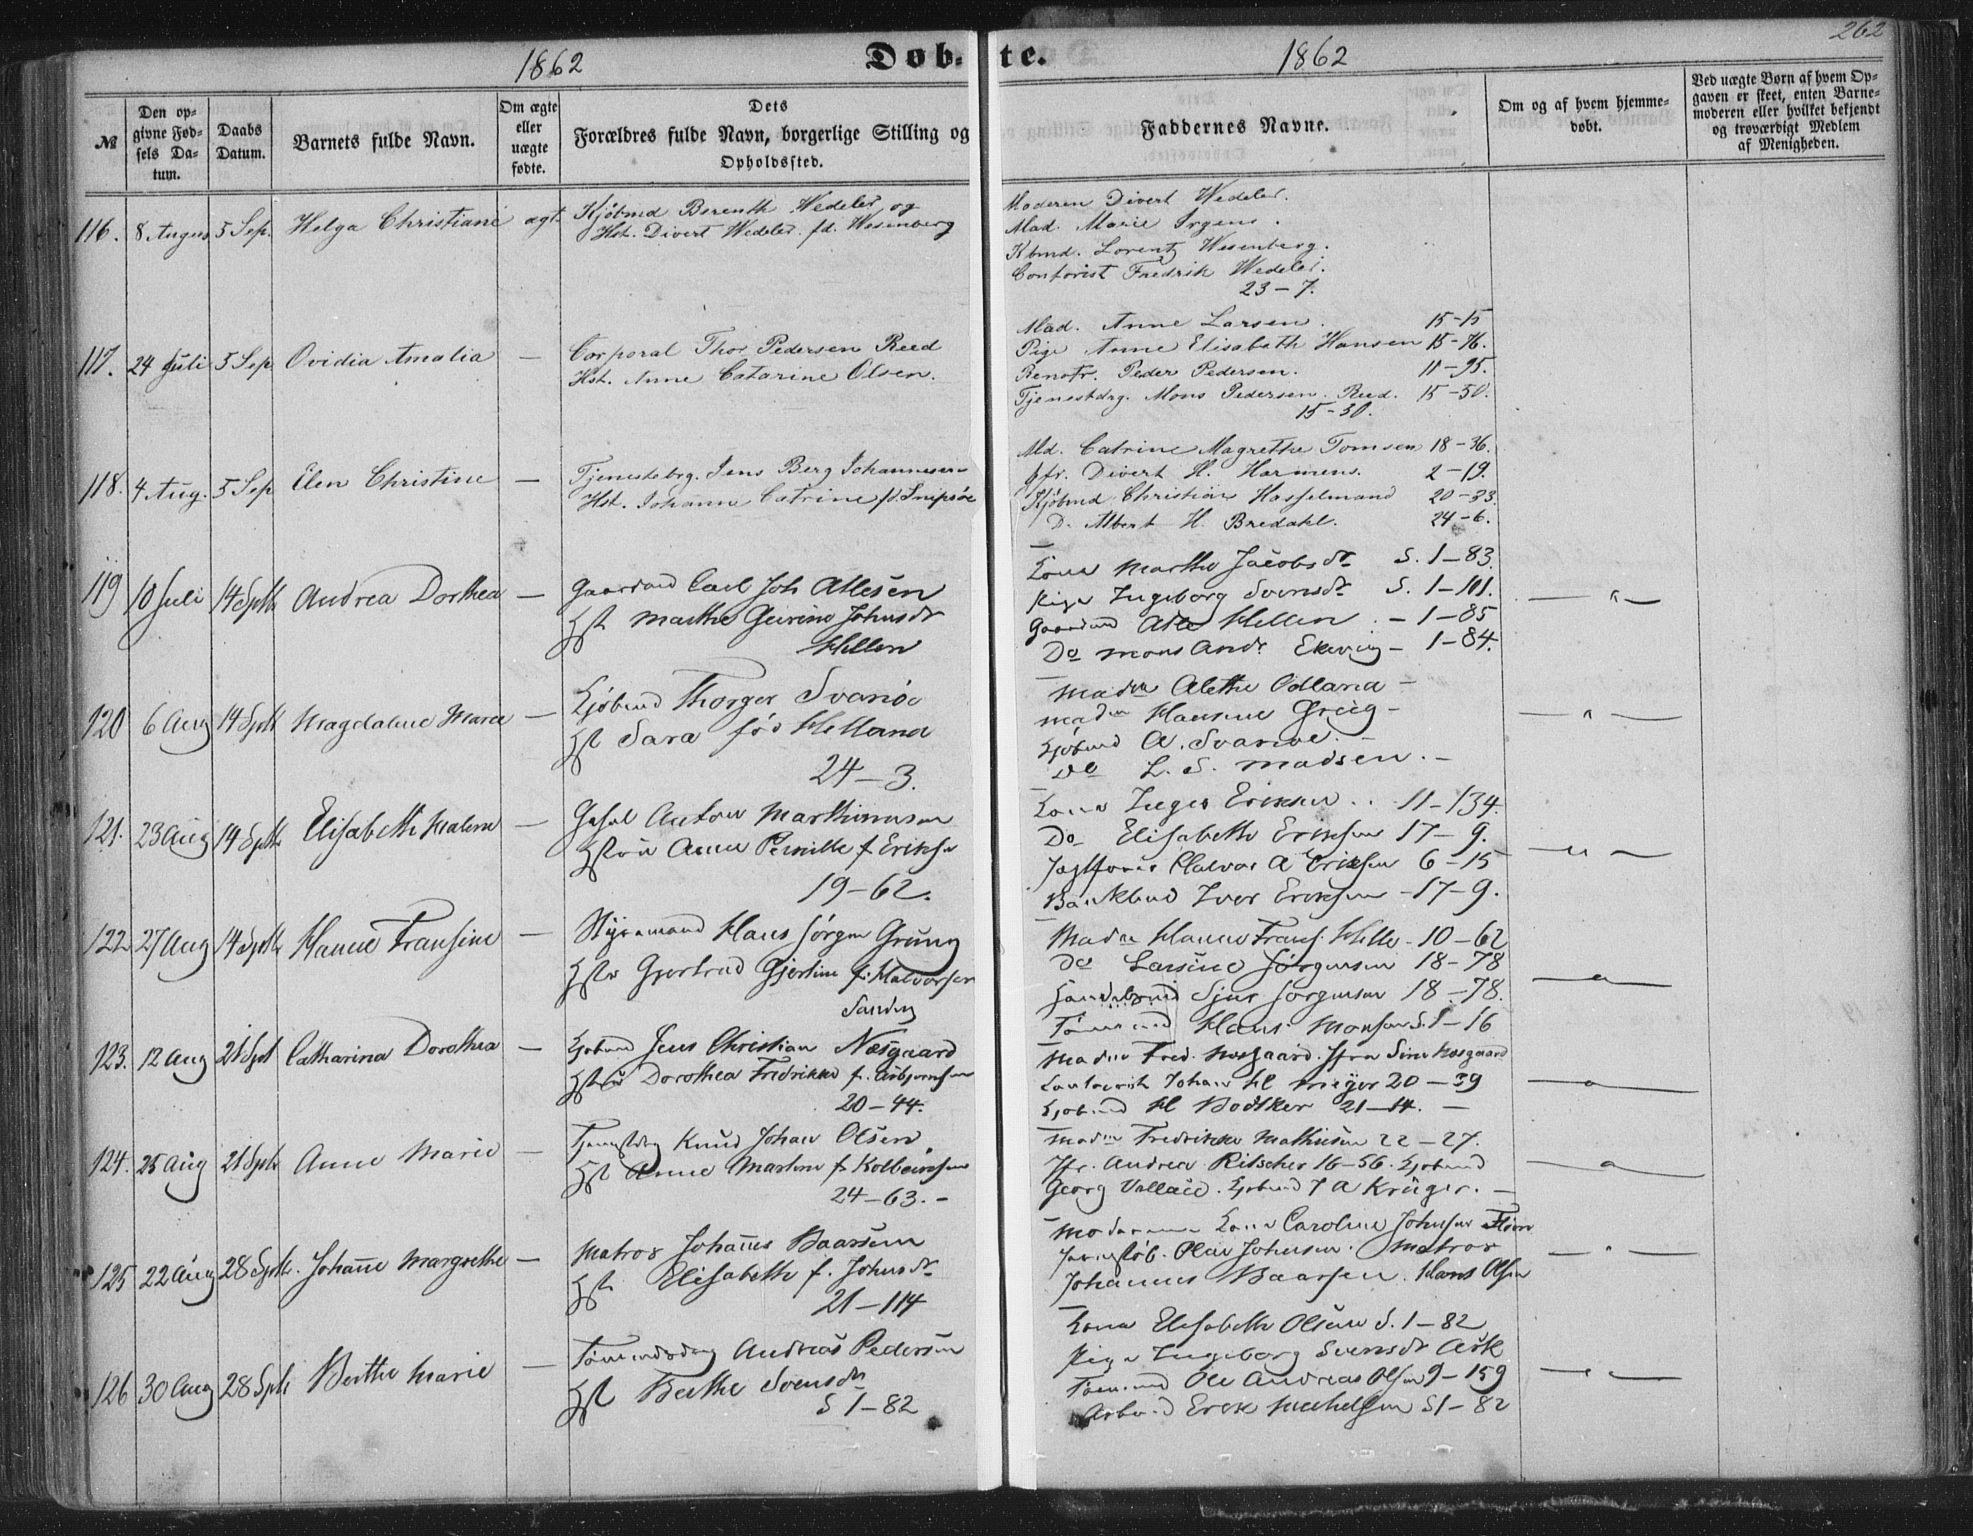 262
1862 Døb-te. 1862
№
Den opgivne Fødsels Datum.
Daabs Datum.
Barnets fulde Navn.
Om ægte eller uægte fødte.
Dets Forældres fulde Navn, borgerlige Stilling og Opholdssted.
Faddernes Navne.
Om og af hvem hjemmedøbt.
Ved uægte Børn af hvem Opgaven er skeet, enten Barnemoderen eller hvilket bekjendt og troværdigt Medlem af Menigheden.
116. 8 August 5 Sep. Helga Christiane ægt. Kjöbmd Berenth Wedeler og
Hst. Divert Wedeler fd. Wesenberg
Moderen Divert Wedeler.
Mad. Marie Irgens.
Kbmd. Lorentz Wesenberg.
Contorist Fredrik Wedeler.
23-7.
117. 24 Juli 5 Sep Ovidia Amalia — Corporal Thor Pedersen Reed
Hst. Anne Catarine Olsen.
Mad. Anne Larsen. 15-15
Pige Anne Elisabeth Hansen 15-76.
Peder Pedersen. 11-95.
Tjenestdrg. Mons Pedersen Reed. 15-50.
15-30.
118. 4 Aug. 5 Sep Elen Christine — Tjenestebrg. Jens Berg Johannesen
Hst. Johanne Catrine fd. Snipsöe
Md. Catrine Magrethe Tomsen 18-36.
Jfr. Divert H. Harmens. 2-19.
Kjöbmd Christian Hasselmand 20-33.
D. Albert H. Bredahl. 24-6.
119 10 Juli 14 Septb Andrea Dorthea — Gaardmd Carl Joh Atlesen
Hst Marthe Johnsdr
Hellen
Kone Marthe Jacobsdr S. 1-83.
Pige Ingeborg Svensdr S. 1-101.
Gaardmd Atle Hellen — 1-85
Do Mons Andr Ekervig — 1-84.
120 6 Aug 14 Septb Magdalene Maria — Kjøbmd Thorger Svanöe
Hst Sara fød Helland
24-3.
Madm Alethe Odland —
Madm Hansine Grieg —
Kjøbmd A. Svanöe. —
Do L. S. Madsen. —
121. 23 Aug 14 Septb Elisabeth Malene — Gesel Anton Marthinussen
Hstru Anne Pernille f Eriksen
19-62.
Kone Inger Eriksen .. 11-134.
Do Elisabeth Eriksen 17-9.
Halvor A Eriksen 6-15
Iver Eriksen -17-9.
122. 27 Aug 14 Septb Hanne Fransine — Styrmand Hans Jörgen Grung
Hstr Gjertrud Gjertine f. Halvorsen
Sandvig
Madm Hanne Frans. Hille - 10-62
Do Larsine Jörgensen 18-78
Sjur Jörgensen 18-78.
Hans Monsen S. 1-16
123. 12 Aug 21 Sept Catharina Dorothea — Kjøbmd Jens Christian Næsgaard
Hstru Dorothea Fredrikke f. Asbjørnsen
20-44.
Madm Fred. Næsgaard. Jfru Sine Næsgaard
Johan H Meyer 20-39
Kjøbmd H Bödtker 21-14. —
124. 25 Aug 21 Septb Anne Marie — Tjenestdrg Knud Johan Olsen
Hst Anne Marthe f Kolbeinsen
24-63. —
Madm Fredrikke Mathiesen 22-27.
Jfr. Andrea Ritscher 16-56. Kjøbmd
Georg Vallace. Kjøbmd J A Krüger. —
125 22 Aug 28 Septb. Johanne Margrethe — Matros Johannes Baarsen
Hst Elisabeth f. Johnsdr
21-114
Kone Caroline Johnsen
Olai Johnsen. Matros
Johannes Baarsen. Hans Olsen
126 30 Aug 28 Septb Berthe Marie — Andreas Pedersen
Hst Berthe Svensdr
S 1-82
Kone Elisabeth Olsen S. 1-82
Pige Ingeborg Svensdr Ask
Tømmermd Ole Andreas Olsen 9-159
Arbmd Erik Mikkelsen S1-82